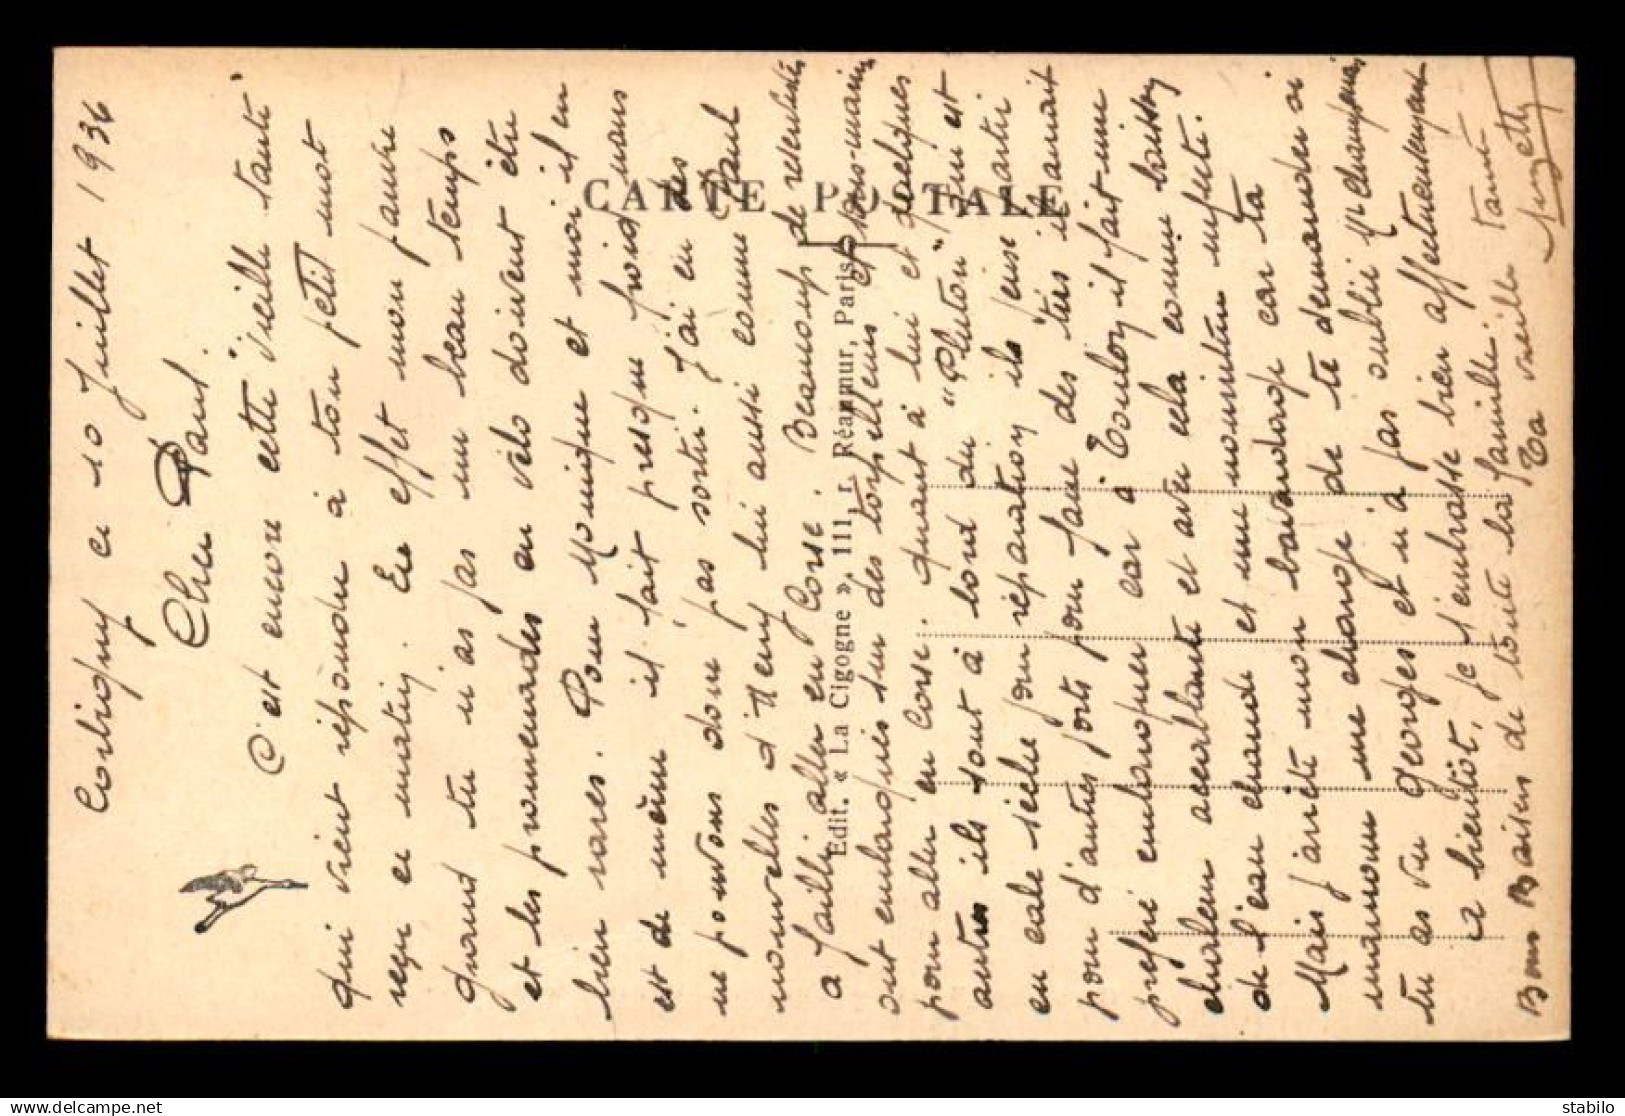 Costigny ce 10 Juillet 1936
Cher Paul.
C'est encore cette "vieille tante"
qui vient répondre à ton petit mot
reçu ce matin. En effet mon pauvre
quand tu n'as pas un beau temps
et les promenades en vélo doivent être
bien rares. Pour Monique et moi il en
est de même il fait presque froid nous
ne pouvons donc pas sortir. J'ai eu des
nouvelles d'Henry lui aussi comme Paul
a failli aller en Corse. Beaucoup de
ont embarqués sur des torpilleurs et sous-marins
pour aller en Corse. quant à lui et quelques
autres ils sont à bord du "Pluton" qui est
en cale sèche pour réparation, ils pense partir
pour d'autres ports pour faire des tirs il aurait
préféré embarquer car à Toulon il fait une
chaleur accablante et avec cela comme boisson
de l'eau chaude et une nourriture infecte.
Mais j'arrête mon bavardage car ta
maman me charge de te demander si
tu as vu Georges et n'a pas oublié Mr
A bientôt, je t'embrasse bien affectueusement
Bons Baisers de toute la famille
Ta vieille tante
Suzette
CARTE POSTALE
Edit. « La Cigogne », 111, r. Réaumur, Paris
stabilo